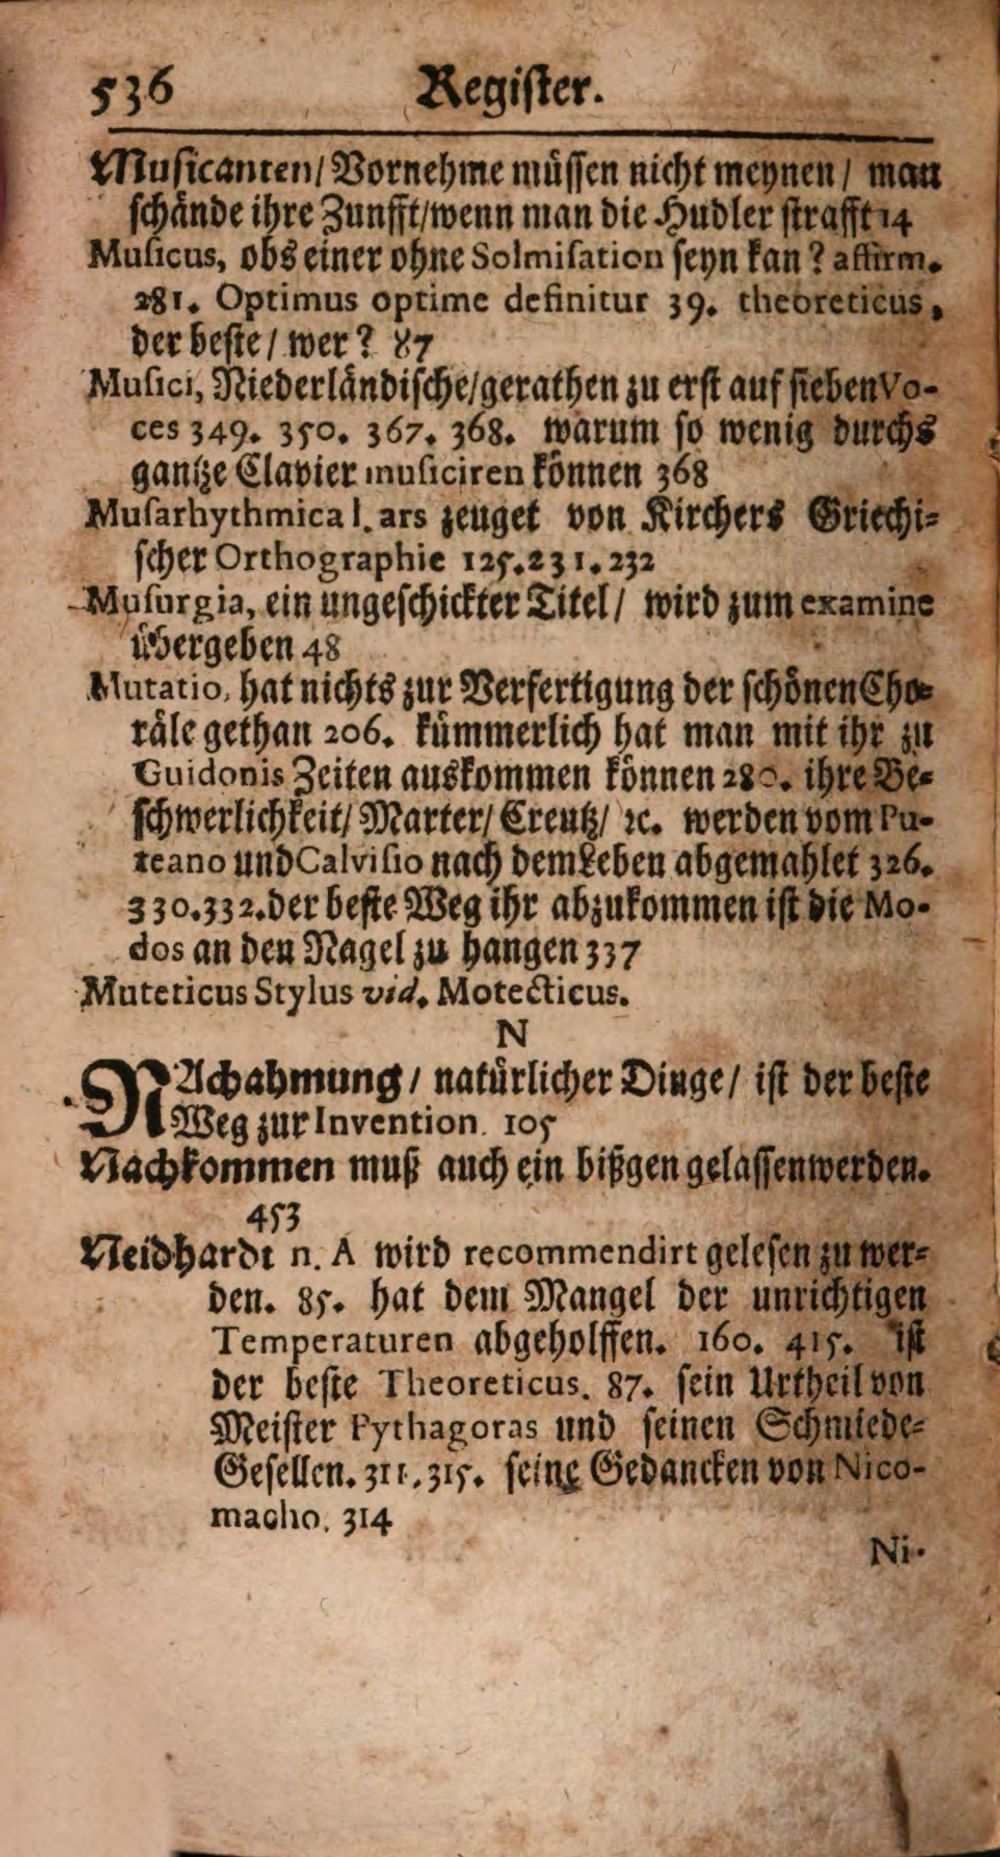 536 Regiſter.
Muſicanten/ Vornehme müſſen nicht meynen / man
ſchände ihre Zunfft/wenn man die Hudler ſtrafft 14
Muſicus, obs einer ohne Solmiſation ſeyn kan? affirm.
281. Optimus optime definitur 39. theoreticus,
der beſte / wer? 87
Muſici, Niederländiſche/gerathen zu erſt auf ſieben Vo-
ces 349. 350. 367. 368. warum ſo wenig durchs
gantze Clavier muſiciren können 368
Muſarhythmica l. ars zeuget von Kirchers Griechi-
ſcher Orthographie 125.231.232
Muſurgia, ein ungeſchickter Titel/ wird zum examine
übergeben 48
Mutatio, hat nichts zur Verfertigung der ſchönen Cho-
räle gethan 206. kümmerlich hat man mit ihr zu
Guidonis Zeiten auskommen können 280. ihre Be-
ſchwerlichkeit/ Marter/ Creutz/ ꝛc. werden vom Pu-
teano und Calviſio nach dem Leben abgemahlet 326.
330.332. der beſte Weg ihr abzukommen iſt die Mo-
dos an den Nagel zu hangen 337
Muteticus Stylus vid. Motecticus.
N
NAchahmung / natürlicher Dinge / iſt der beſte
Weg zur Invention. 105
Nachkommen muß auch ein bißgen gelaſſen werden.
453
Neidhardt n. A wird recommendirt geleſen zu wer-
den. 85. hat dem Mangel der unrichtigen
Temperaturen abgeholffen. 160. 415. iſt
der beſte Theoreticus. 87. ſein Urtheil von
Meiſter Pythagoras und ſeinen Schmiede-
Geſellen. 311. 315. ſeine Gedancken von Nico-
macho. 314
Ni-